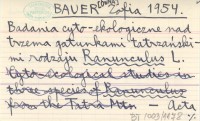 BAUER Zofia 1954.
Badania cyto-ekologiczne nad
trzema gatunkami tatrzański-
mi rodzaju Ranunculus L.
Cyto-ecological studies in
three species of Ranunculus
from the Tatra Mtn - Acta